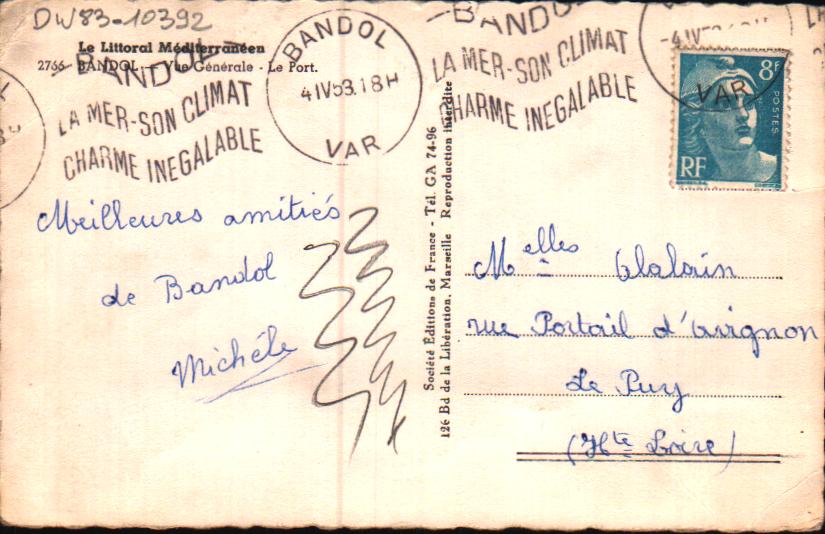 DW83-10392
Le Littoral Méditerranéen
2766 - BANDOL - Vue Générale - Le Port.
BANDOL
LA MER-SON CLIMAT
CHARME INEGALABLE
BANDOL
4 IV 53.18H
VAR
BANDOL
LA MER-SON CLIMAT
CHARME INEGALABLE
-4 IV
VAR
8F
POSTES
RF
Meilleures amitiés
de Bandol
Michéle
Société Éditions de France - Tél. GA 74-96
126 Bd de la Libération, Marseille Reproduction interdite
Melles
rue Portail d'Avignon
Le Puy
(Hte Loire)